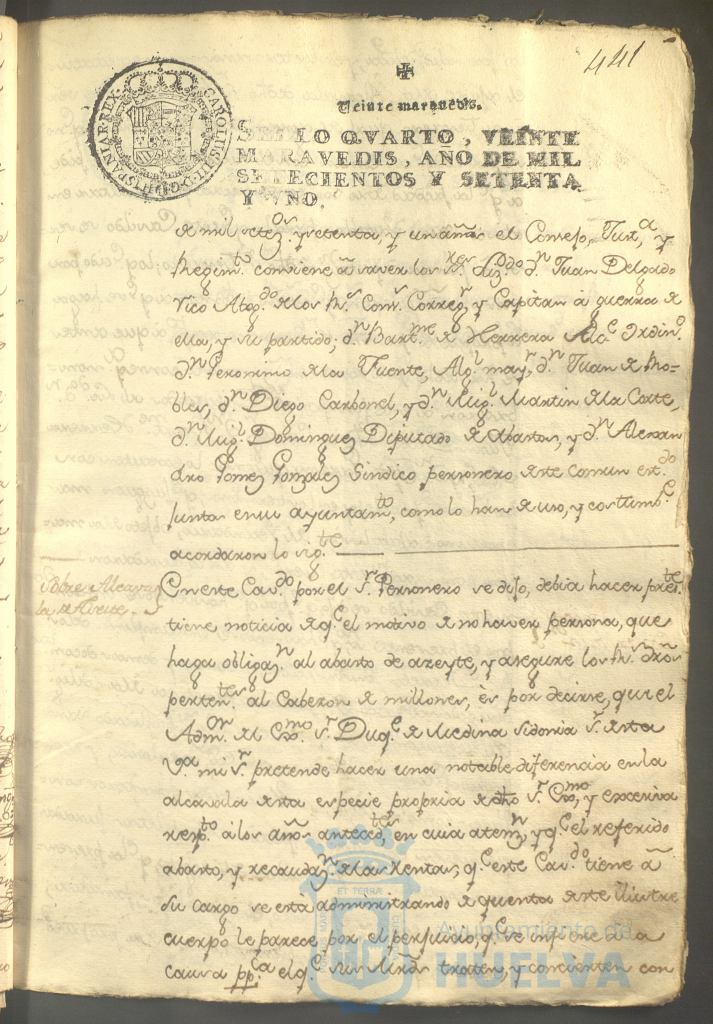 441
Veinte maravedis.
SELLO QVARTO, VEINTE
MARAVEDIS, AÑO DE MIL
SETECIENTOS Y SETENTA
Y VNO.
CAROLUS III D G HISPANIAR REX
de mil setez.os y setenta, y un años el Consejo, Just.a y
Regim.to conviene â saver los S.res Liz.do d.n Juan Delgado
Vico Abog.do de los R.s Cons.s Correg.r y Capitan â guerra de
ella, y su partido; d.n Bart.me de Herrera Alc.e Ordin.o
d.n Geronimo de la Fuente, Alg.l may.r d.n Juan de Ro-
bles, d.n Diego Carbonel, y d.n Mig.l Martin de la Corte,
d.n Mig.l Dominguez Diputado de Abastos, y d.n Alexan
dro Gomez Gonzalez Sindico personero de este comun est.do
juntos en su ayuntam.to, como lo han de uso, y costumb.e
acordaron lo sig.te
Sobre Alcava
la de Aceite
En este Cav.do por el S.r Personero se dijo, debia hacer pres.te
tiene noticia de q.e el motivo de no haver persona, que
haga obligaz.n al abasto de azeyte, y asegure los R.s dros
perten.tes al Cabezon de millones, es por decirse, que el
Adm.or del Ex.mo S.r Duq.e de Medina Sidonia S.r de esta
V.a mi S.r pretende hacer una notable diferencia en la
alcavala de esta especie propria de dho S.r Ex.mo, y excesiva
resp.to â los años anteced.tes, en cuia atenz.n, y q.e el referido
abasto, y recaudaz.n de las Rentas; q.e este Cav.do tiene â
su cargo se esta administrando de quenta de este Ilustre
cuerpo le parece por el perjuicio, q.e se infiere a la
causa pp.ca el q.e sus Mrds traten, y concierten con
Ayuntamiento de
HUELVA